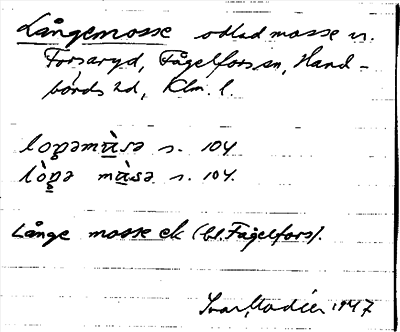 Långemosse odlad mosse n.
Forsaryd, Fågelfors sn, Hand-
börds hd, Klm. l.
s. 104
s. 104.
Långe mosse ek (bl. Fågelfors).
Ivar Modéer 1947